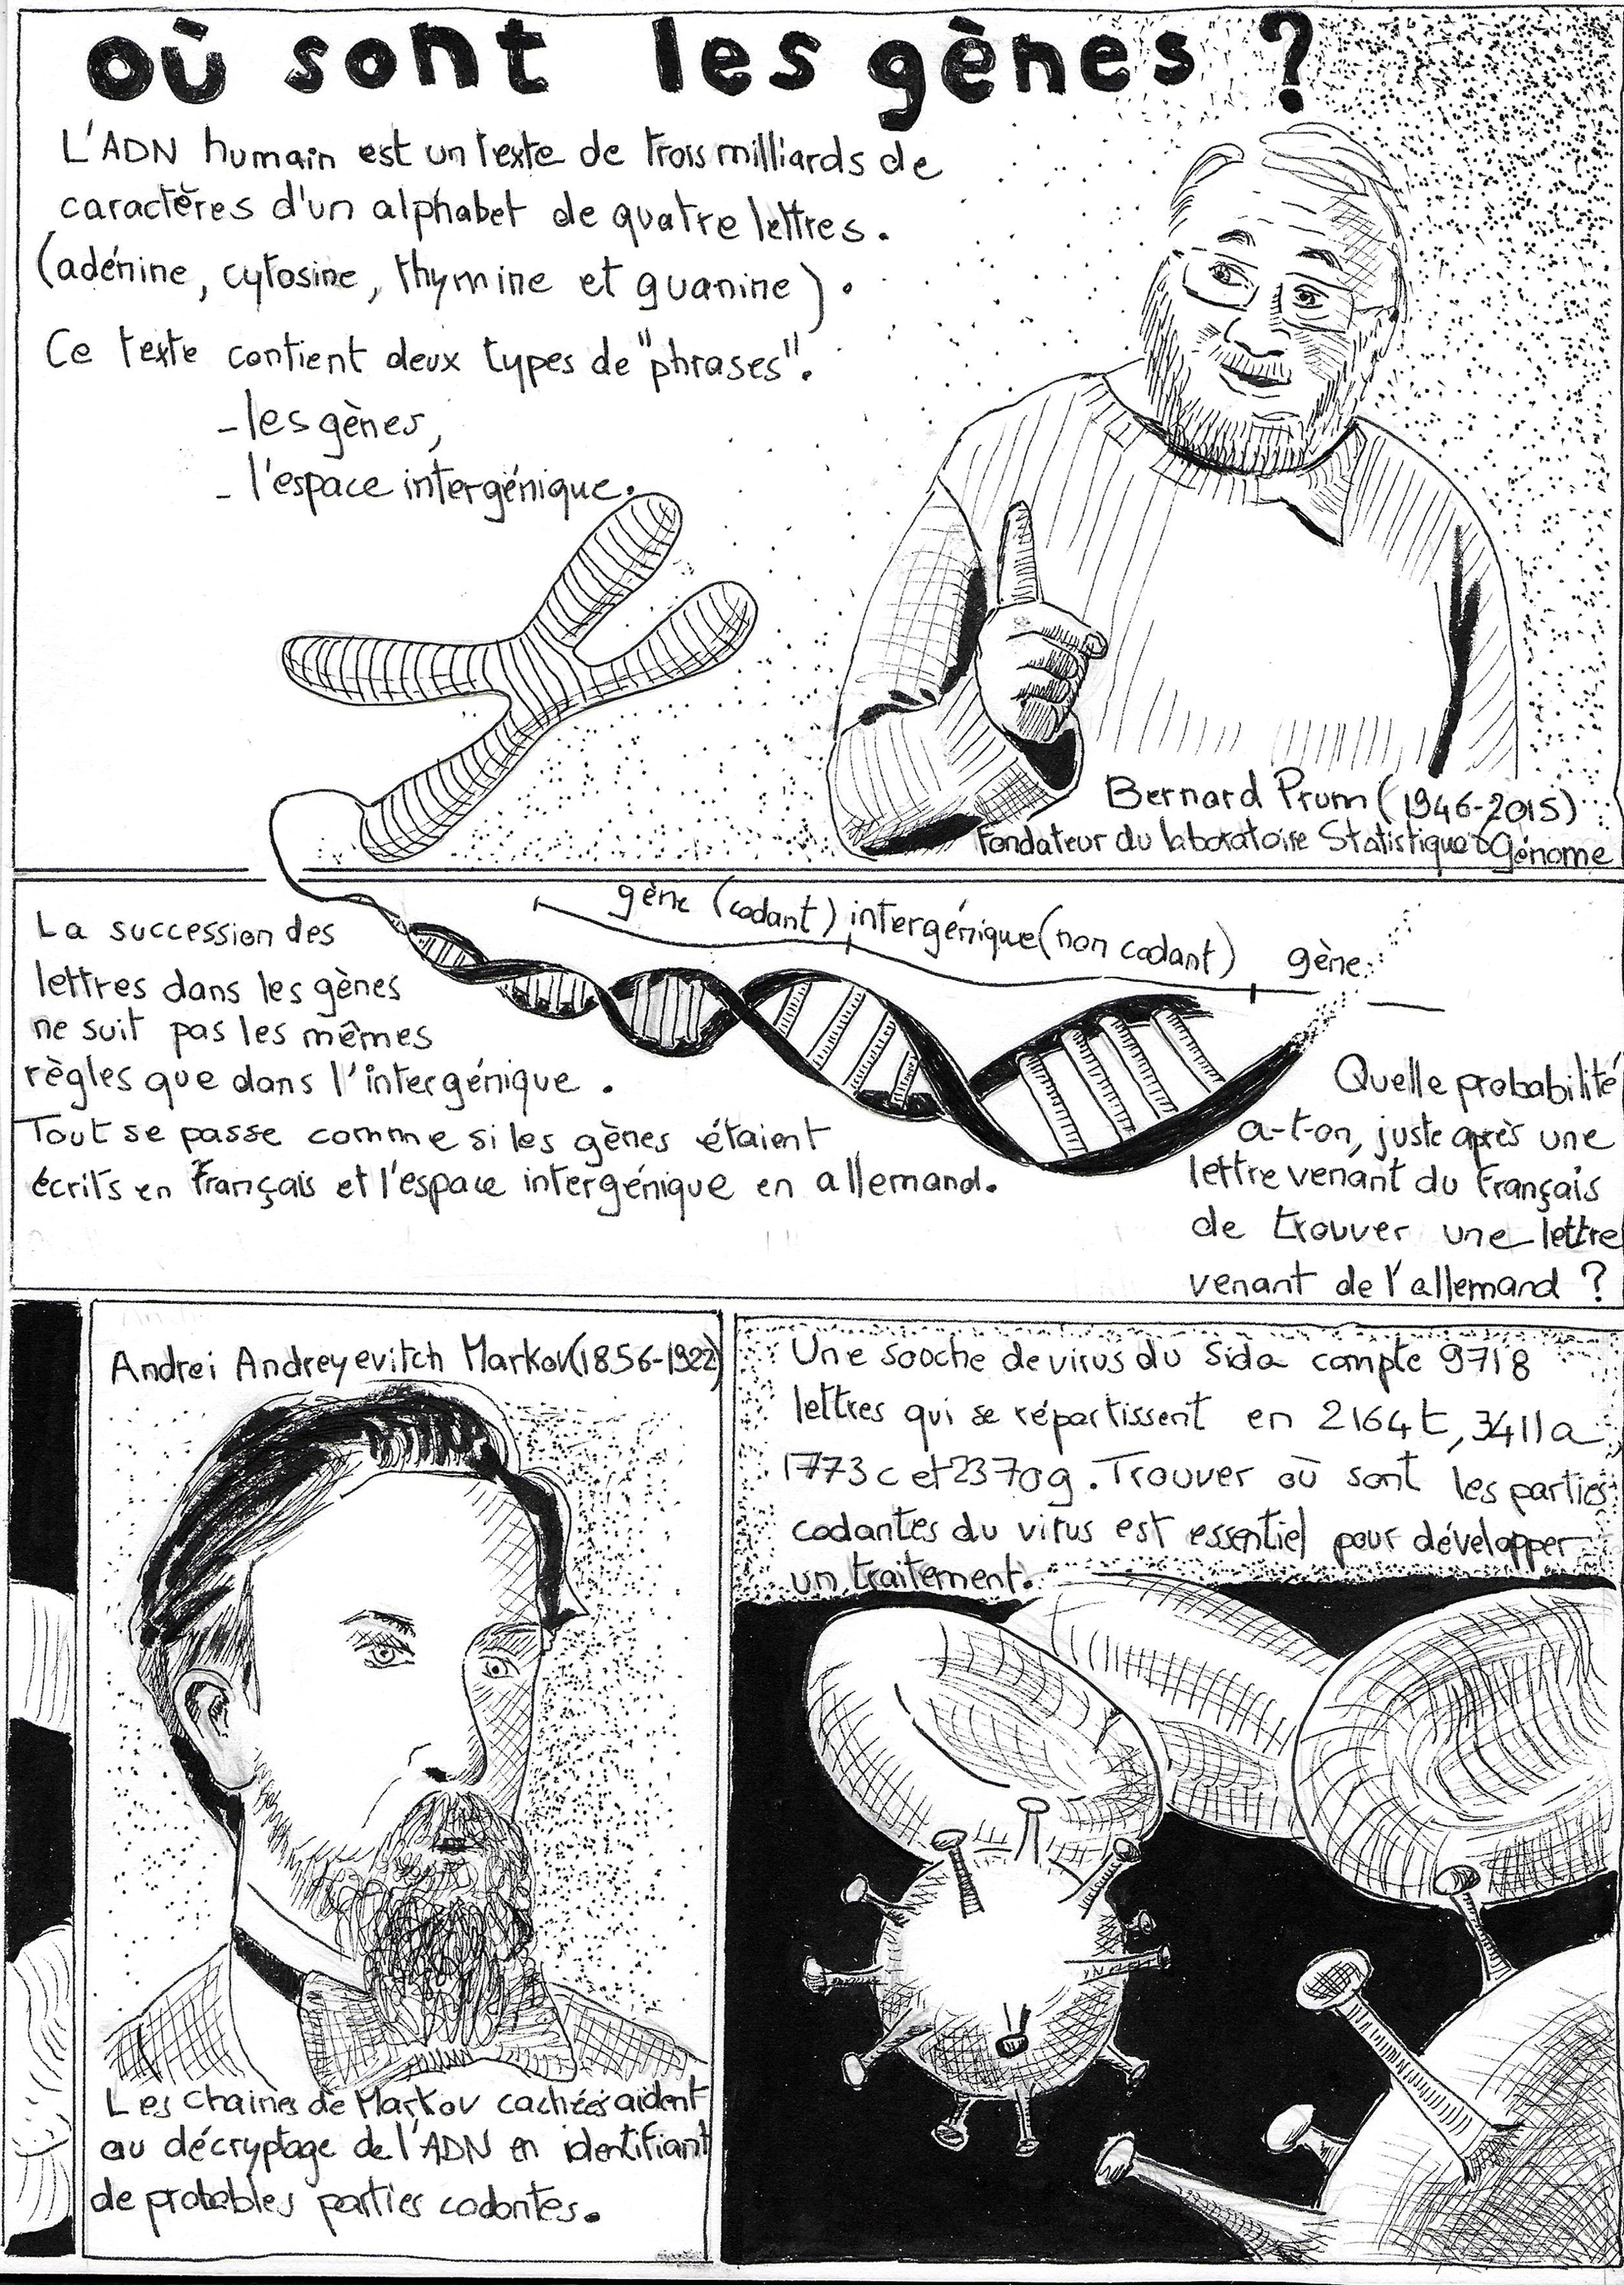 où sont les gènes ?
L'ADN humain est un texte de trois milliards de
caractères d'un alphabet de quatre lettres.
(adénine, cytosine, thymine et guanine).
Ce texte contient deux types de "phrases".
- les gènes,
- l'espace intergénique.
Bernard Prum (1946-2015)
Fondateur du laboratoire Statistique & Génome
gène (codant) intergénique (non codant) gène
La succession des
lettres dans les gènes
ne suit pas les mêmes
règles que dans l'intergénique.
Tout se passe comme si les gènes étaient
écrits en Français et l'espace intergénique en allemand.
Quelle probabilité
a-t-on, juste après une
lettre venant du Français
de trouver une lettre
venant de l'allemand ?
Andrei Andreyevitch Markov (1856-1922)
Les chaines de Markov cachées aident
au décryptage de l'ADN en identifiant
de probables parties codantes.
Une sooche de virus du Sida compte 9718
lettres qui se répartissent en 2164 t, 3411 a
1773 c et 2370 g. Trouver où sont les parties
codantes du virus est essentiel pour développer
un traitement.